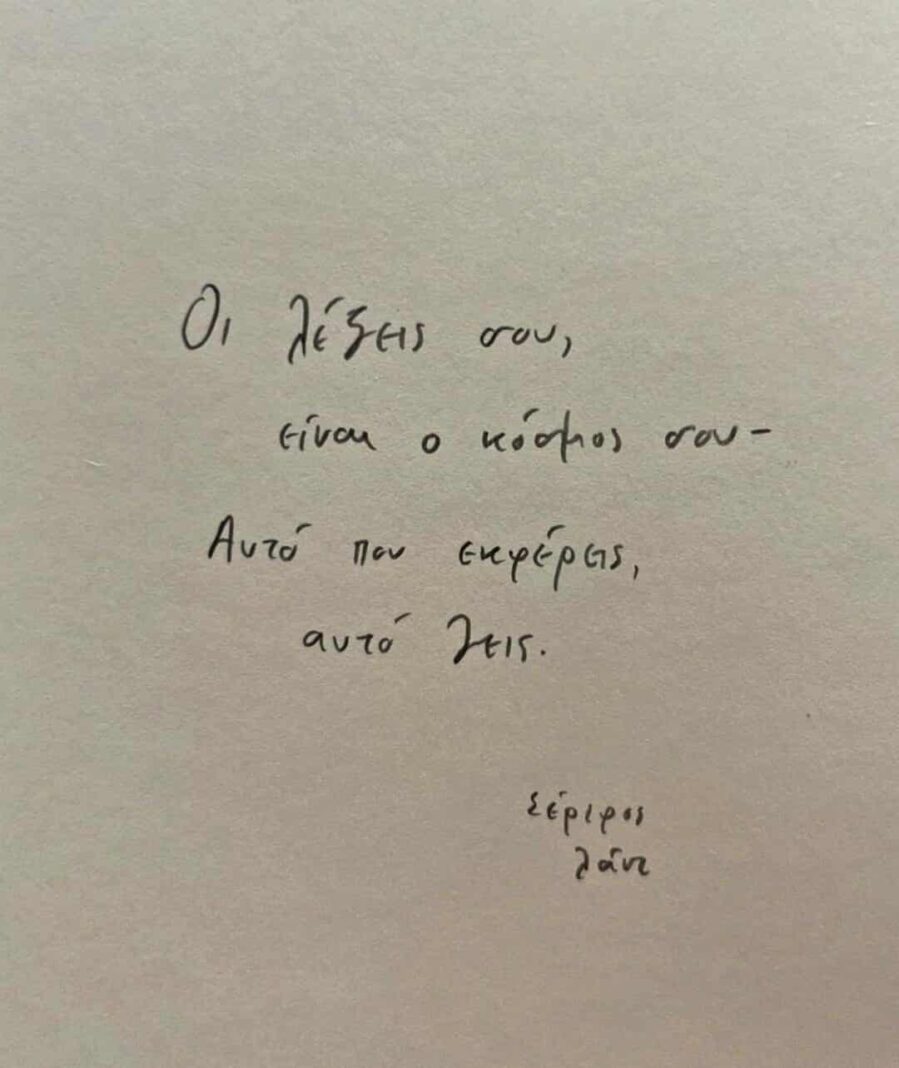 Οι λέξεις σου,
είναι ο κόσμος σου-
Αυτό που εκφέρεις,
αυτό ζεις.
Σέριφος
λάντ